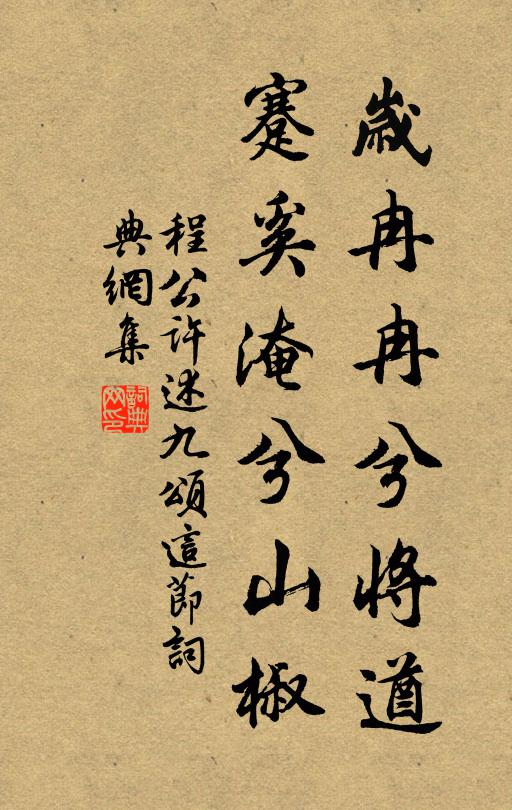 歲冉冉兮將遒
蹇奚淹兮山椒
程公許述九頌這節詞
典網集
詞典网印